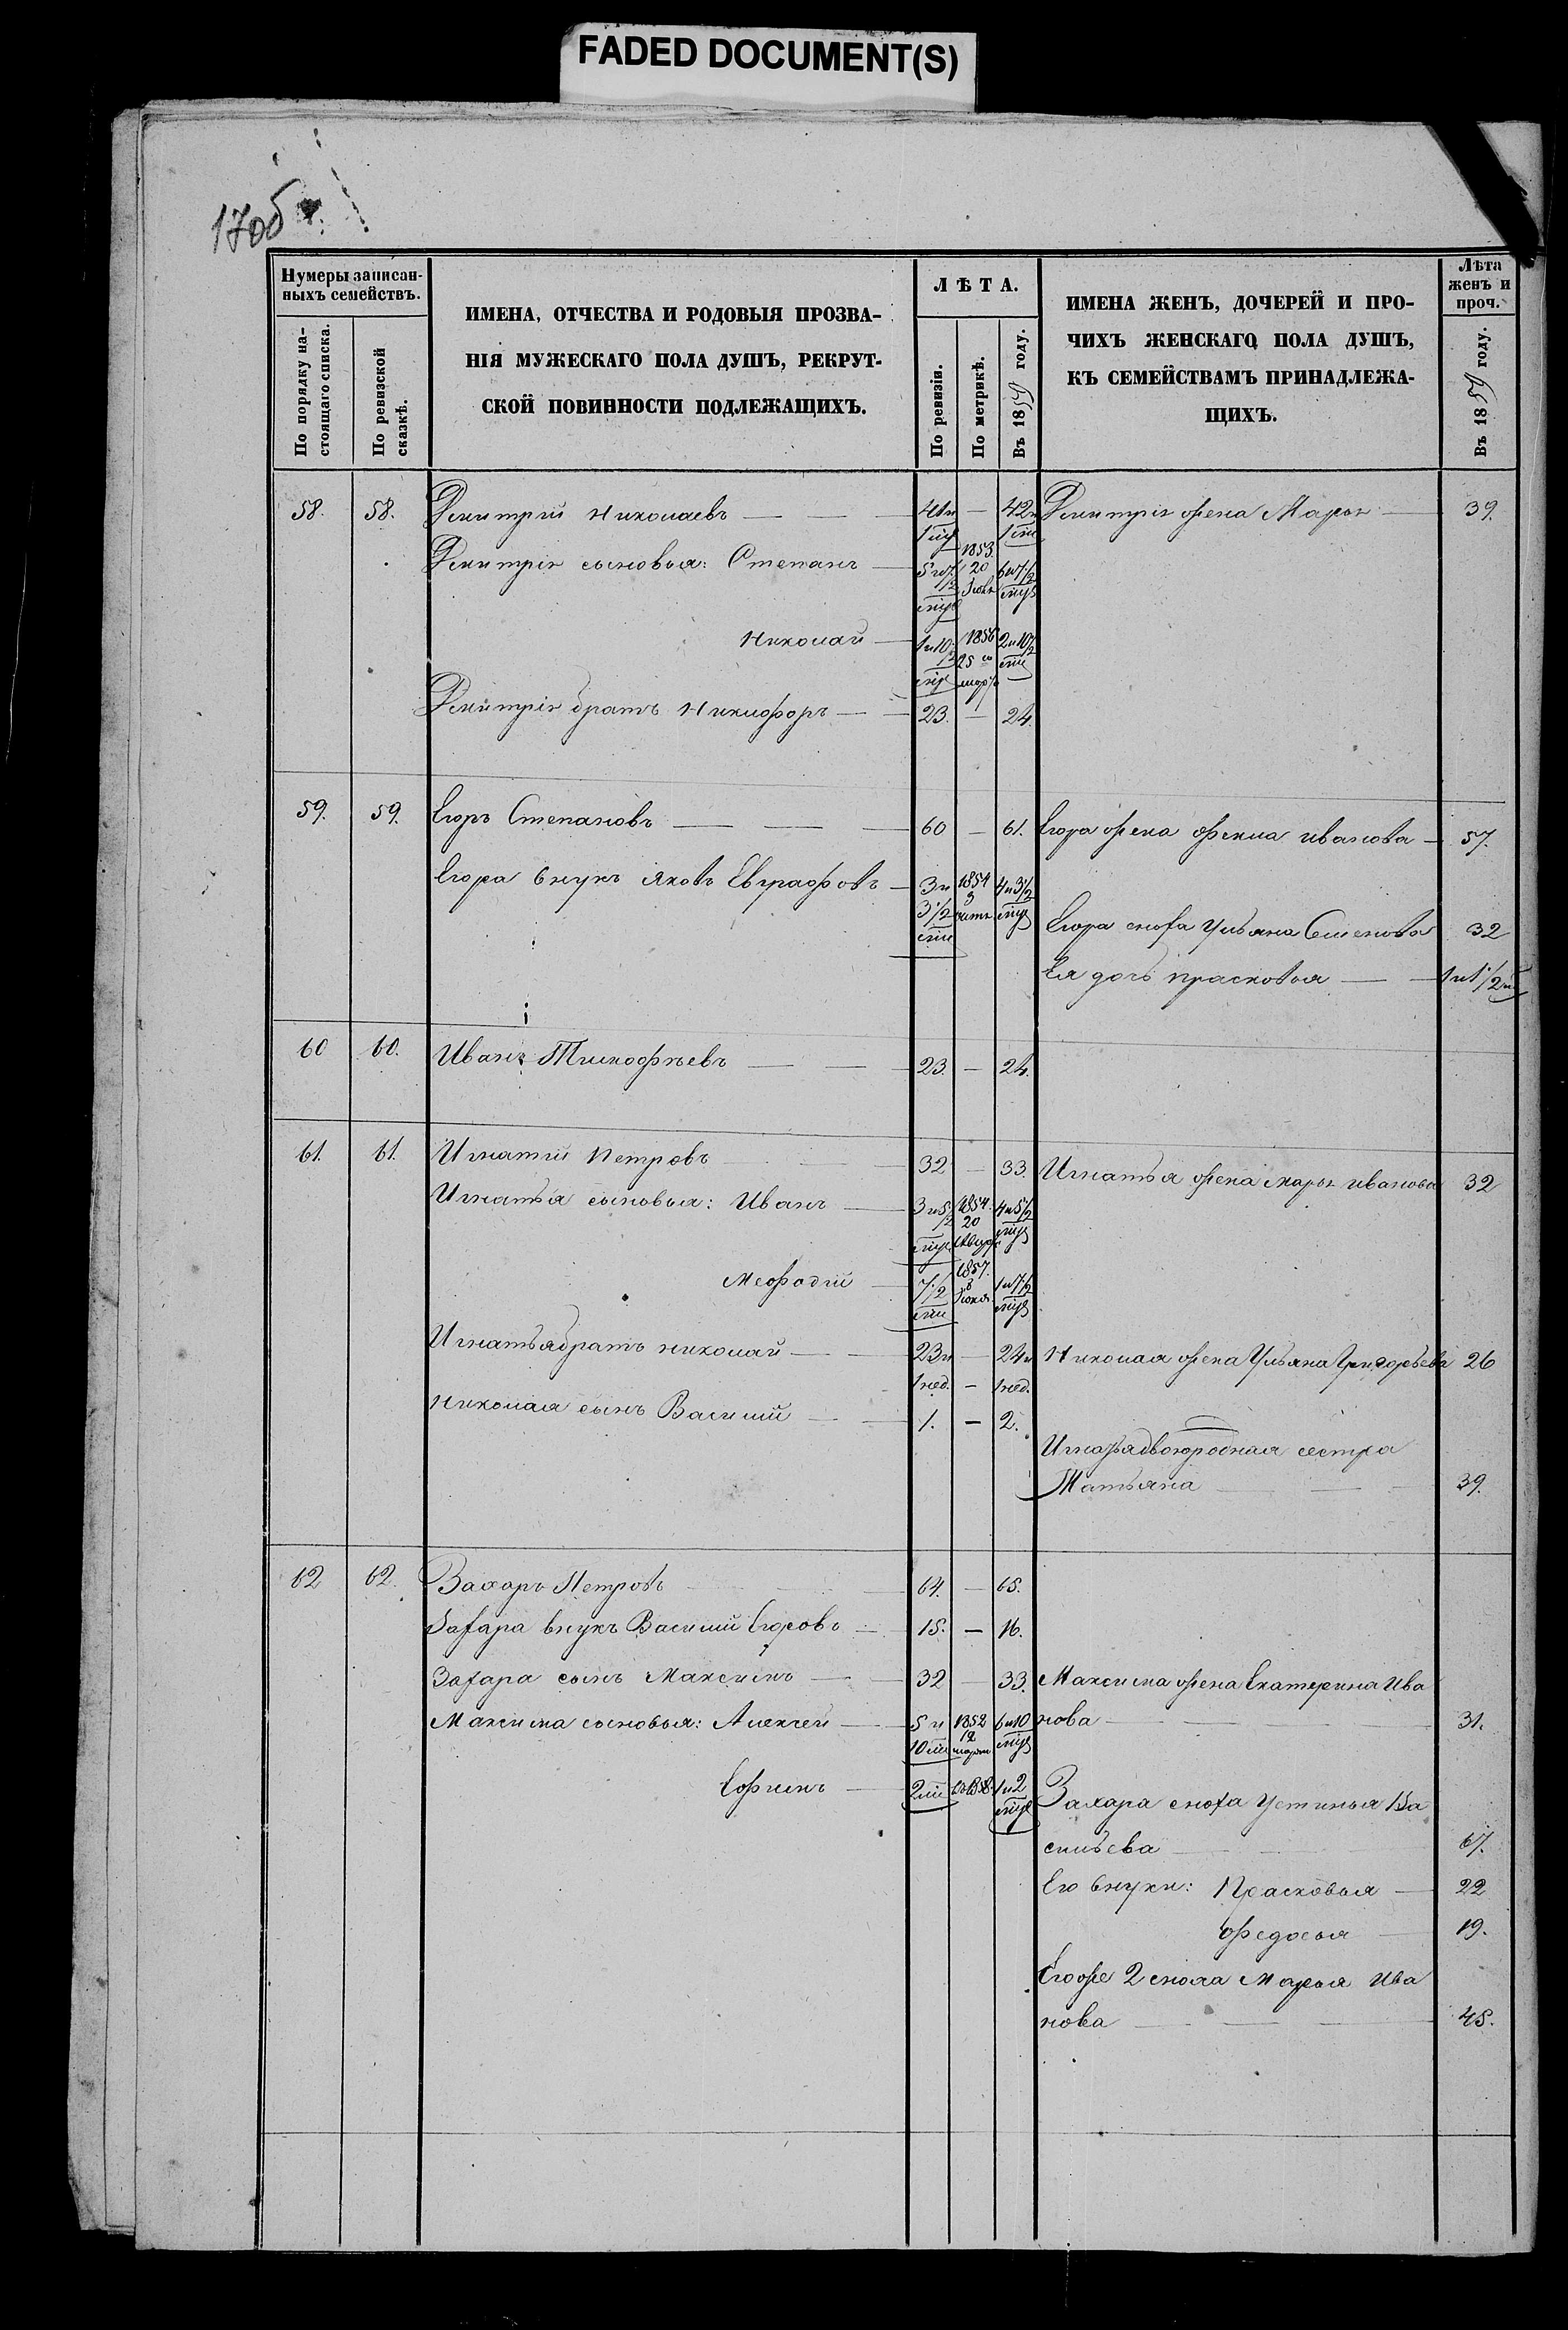 FADED DOCUMENT(S)
17об.
Нумеры записан-
ныхъ семействъ.
По порядку на-
стоящаго списка.
По ревизской
сказкѣ.
ИМЕНА, ОТЧЕСТВА И РОДОВЫЯ ПРОЗВА-
НІЯ МУЖЕСКАГО ПОЛА ДУШЪ, РЕКРУТ-
СКОЙ ПОВИННОСТИ ПОДЛЕЖАЩИХЪ.
ЛѢТА.
По ревизіи.
По метрикѣ.
Въ 1859 году.
ИМЕНА ЖЕНЪ, ДОЧЕРЕЙ И ПРО-
ЧИХЪ ЖЕНСКАГО ПОЛА ДУШЪ,
КЪ СЕМЕЙСТВАМЪ ПРИНАДЛЕЖА-
ЩИХЪ.
Лѣта
женъ и
проч.
Въ 1859 году.
58. 58. Дмитрій Николаевъ — 41 и — 42 и Дмитрія жена Марья — 39.
1 1
Дмитрія сыновья: Степанъ — 5 и 7 1/2 1853. 20 6 и 7 1/2
Николай — 1 и 10 1/2 1856 25 2 и 10 1/2
Дмитрія братъ Никифоръ — 23. — 24.
59. 59. Егоръ Степановъ — 60 — 61. Егора жена Фекла Иванова — 57.
Егора внукъ Яковъ Евграфовъ — 3 и 3 1/2 1854 4 и 3 1/2
Егора сноха Ульяна Семенова 32
Ея дочь Прасковья — 1 и 1 1/2
60 60. Иванъ Тимофѣевъ — 23. — 24.
61. 61. Игнатій Петровъ 32 — 33. Игнатья жена Марья Иванова 32
Игнатья сыновья: Иванъ — 3 и 5 1/2 1854. 20 4 и 5 1/2
Мефодій — 7 1/2 1857. 1 и 7 1/2
Игнатья братъ Николай — 23 и — 24 и Николая жена Ульяна Григорьева 26
1 нед. — 1 нед.
Николая сынъ Василій — 1. — 2.
Игнатья двоюродная сестра
Татьяна — 39.
62 62. Захаръ Петровъ 64. — 65.
Захара внукъ Василій Егоровъ — 15. — 16.
Захара сынъ Максимъ — 32 — 33. Максима жена Екатерина Ива
нова — 31.
Максима сыновья: Алексей — 5 и 10 1852 12 6 и 10
Ефимъ — 2 1858. 1 и 2
Захара сноха Устинья Ва
сильева — 67.
Его внуки: Прасковья — 22
Федосья — 19.
Его же 2 сноха Марья Ива
нова — 45.